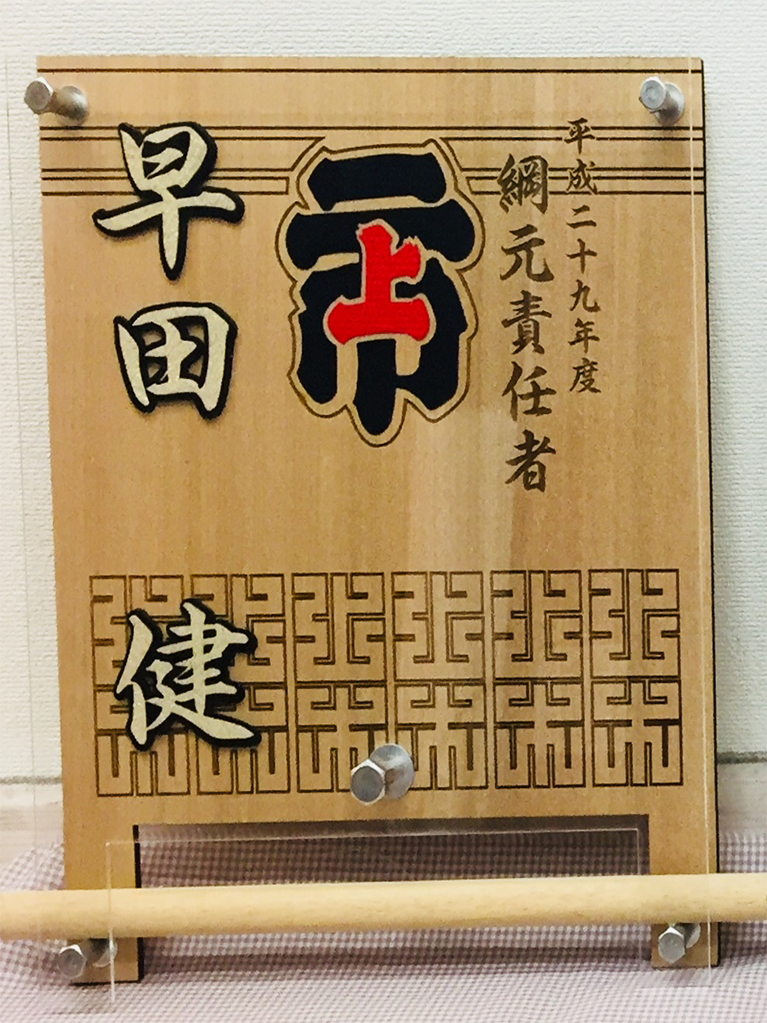 平成二十九年度
綱元責任者
上
早田
健